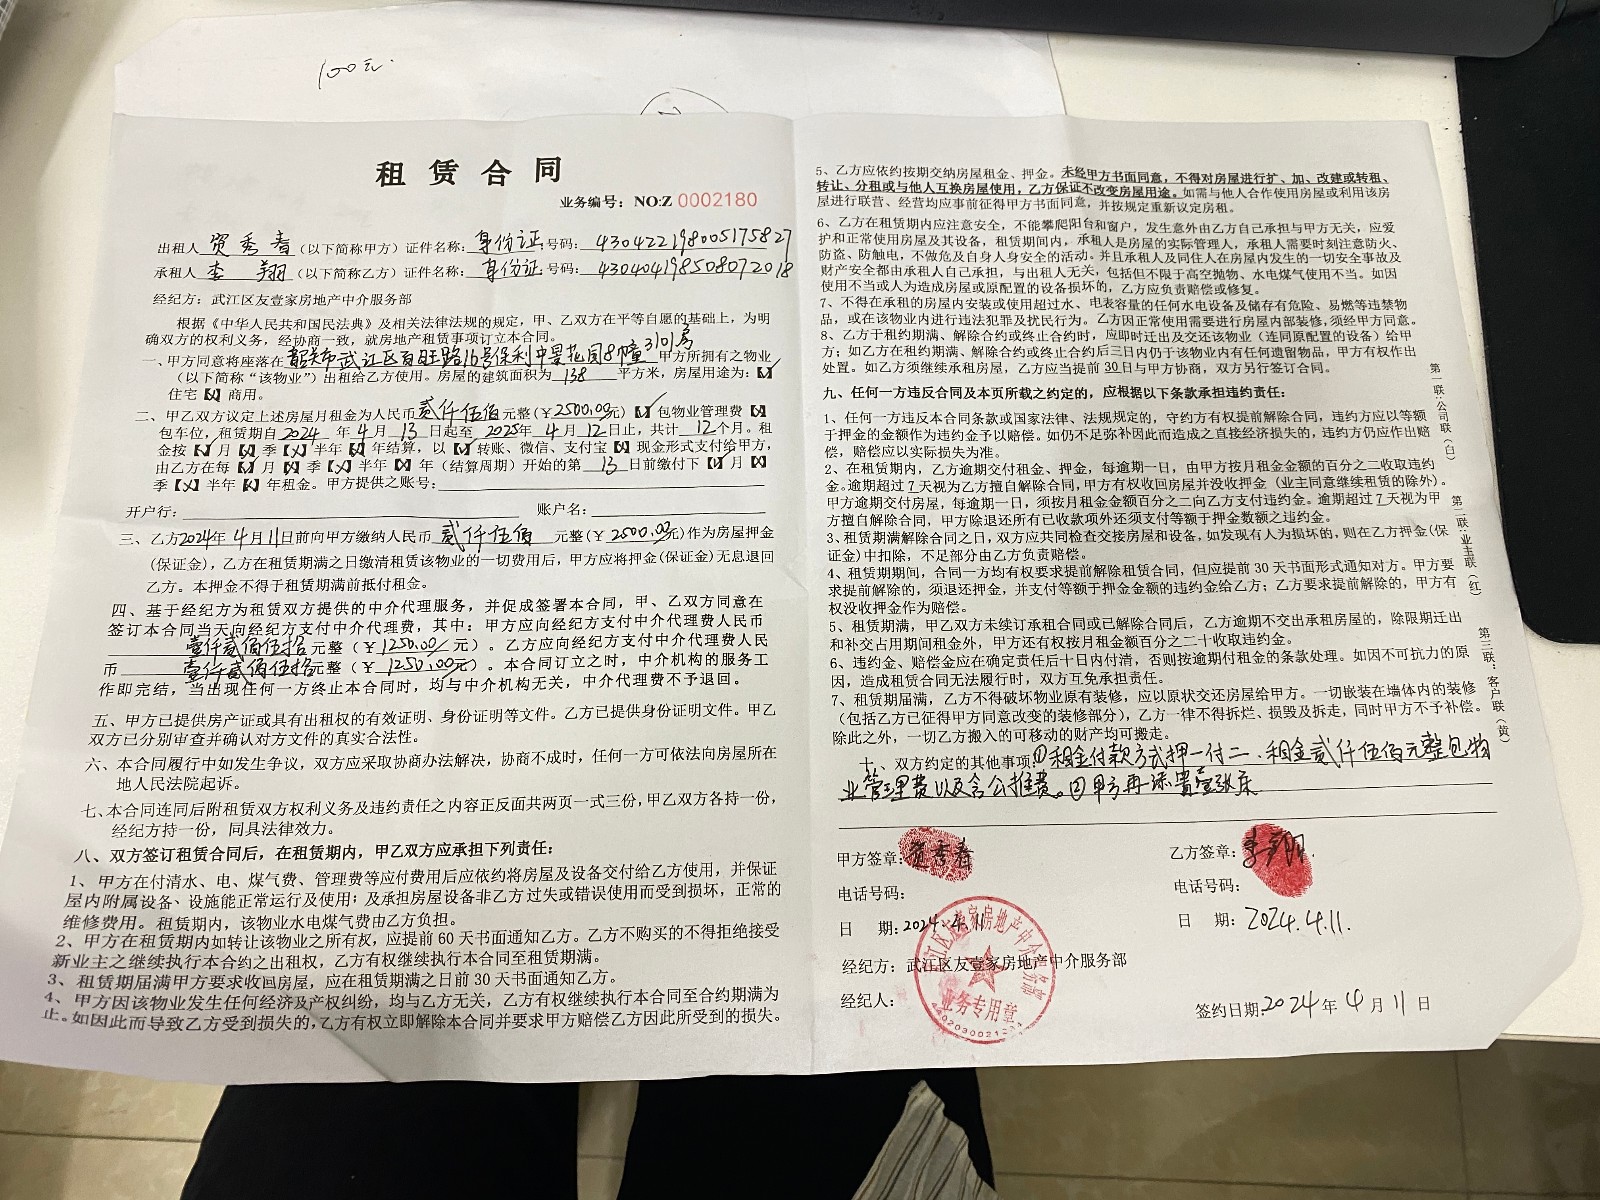 100元.
租赁合同
业务编号：NO:Z 0002180
出租人 贺秀春（以下简称甲方）证件名称：身份证 号码：430422198005175827
承租人 李翔（以下简称乙方）证件名称：身份证 号码：430404198508072018
经纪方：武江区友壹家房地产中介服务部
根据《中华人民共和国民法典》及相关法律法规的规定，甲、乙双方在平等自愿的基础上，为明
确双方的权利义务，经协商一致，就房地产租赁事项订立本合同。
一、甲方同意将座落在 韶关市武江区百旺路16号保利中景花园8幢3101号 甲方所拥有之物业
（以下简称“该物业”）出租给乙方使用。房屋的建筑面积为 138 平方米，房屋用途为：【✓】
住宅【×】商用。
二、甲乙双方议定上述房屋月租金为人民币 贰仟伍佰 元整（￥2500.00元）【✓】包物业管理费【×】
包车位，租赁期自 2024 年 4 月 13 日起至 2025 年 4 月 12 日止，共计 12 个月。租
金按【】月【】季【】半年【】年结算，以【】转账、微信、支付宝【】现金形式支付给甲方，
由乙方在每【】月【】季【】半年【】年（结算周期）开始的第 13 日前缴付下【】月【】
季【】半年【】年租金。甲方提供之账号：
开户行： 账户名：
三、乙方2024年4月11日前向甲方缴纳人民币 贰仟伍佰 元整（￥2500.00元）作为房屋押金
(保证金)，乙方在租赁期满之日缴清租赁该物业的一切费用后，甲方应将押金(保证金)无息退回
乙方。本押金不得于租赁期满前抵付租金。
四、基于经纪方为租赁双方提供的中介代理服务，并促成签署本合同，甲、乙双方同意在
签订本合同当天向经纪方支付中介代理费，其中：甲方应向经纪方支付中介代理费人民币
壹仟贰佰伍拾元整（￥1250.00/元）。乙方应向经纪方支付中介代理费人民
币 壹仟贰佰伍拾元整（￥1250.00元）。本合同订立之时，中介机构的服务工
作即完结，当出现任何一方终止本合同时，均与中介机构无关，中介代理费不予退回。
五、甲方已提供房产证或具有出租权的有效证明、身份证明等文件。乙方已提供身份证明文件。甲乙
双方已分别审查并确认对方文件的真实合法性。
六、本合同履行中如发生争议，双方应采取协商办法解决，协商不成时，任何一方可依法向房屋所在
地人民法院起诉。
七、本合同连同后附租赁双方权利义务及违约责任之内容正反面共两页一式三份，甲乙双方各持一份，
经纪方持一份，同具法律效力。
八、双方签订租赁合同后，在租赁期内，甲乙双方应承担下列责任：
1、甲方在付清水、电、煤气费、管理费等应付费用后应依约将房屋及设备交付给乙方使用，并保证
屋内附属设备、设施能正常运行及使用；及承担房屋设备非乙方过失或错误使用而受到损坏，正常的
维修费用。租赁期内，该物业水电煤气费由乙方负担。
2、甲方在租赁期内如转让该物业之所有灰，应提前60天书面通知乙方。乙方不购买的不得拒绝接受
新业主之继续执行本合约之出租权，乙方有权继续执行本合同至租赁期满。
3、租赁期届满甲方要求收回房屋，应在租赁期满之日前30天书面通知乙方。
4、甲方因该物业发生任何经济及产权纠纷，均与乙方无关，乙方有权继续执行本合同至合约期满为
止。如因此而导致乙方受到损失的，乙方有权立即解除本合同并要求甲方赔偿乙方因此所受到的损失。
5、乙方应依约按期交纳房屋租金、押金。未经甲方书面同意，不得对房屋进行扩、加、改建或转租、
转让、分租或与他人互换房屋使用，乙方保证不改变房屋用途。如需与他人合作使用房屋或利用该房
屋进行联营、经营均应事前征得甲方书面同意，并按规定重新议定房租。
6、乙方在租赁期内应注意安全，不能攀爬阳台和窗户，发生意外由乙方自己承担与甲方无关，应爱
护和正常使用房屋及其设备，租赁期间内，承租人是房屋的实际管理人，承租人需要时刻注意防火、
防盗、防触电，不做危及自身人身安全的活动。并且承租人及同住人在房屋内发生的一切安全事故及
财产安全都由承租人自己承担，与出租人无关，包括但不限于高空抛物、水电煤气使用不当。如因
使用不当或人为造成房屋或原配置的设备损坏的，乙方应负责赔偿或修复。
7、不得在承租的房屋内安装或使用超过水、电表容量的任何水电设备及储存有危险、易燃等违禁物
品，或在该物业内进行违法犯罪及扰民行为。乙方因正常使用需要进行房屋内部装修，须经甲方同意。
8、乙方于租约期满、解除合约或终止合约时，应即时迁出及交还该物业（连同原配置的设备）给甲
方；如乙方在租约期满、解除合约或终止合约后三日内仍于该物业内有任何遗留物品，甲方有权作出
处置。如乙方须继续承租房屋，乙方应当提前30日与甲方协商，双方另行签订合同。
九、任何一方违反合同及本页所载之约定的，应根据以下条款承担违约责任：
1、任何一方违反本合同条款或国家法律、法规规定的，守约方有权提前解除合同，违约方应以等额
于押金的金额作为违约金予以赔偿。如仍不足弥补因此而造成之直接经济损失的，违约方仍应作出赔
偿，赔偿应以实际损失为准。
2、在租赁期内，乙方逾期交付租金、押金，每逾期一日，由甲方按月租金金额的百分之二收取违约
金。逾期超过7天视为乙方擅自解除合同，甲方有权收回房屋并没收押金（业主同意继续租赁的除外）。
甲方逾期交付房屋，每逾期一日，须按月租金金额百分之二向乙方支付违约金。逾期超过7天视为甲
方擅自解除合同，甲方除退还所有已收款项外还须支付等额于押金数额之违约金。
3、租赁期满解除合同之日，双方应共同检查交接房屋和设备，如发现有人为损坏的，则在乙方押金(保
证金)中扣除，不足部分由乙方负责赔偿。
4、租赁期期间，合同一方均有权要求提前解除租赁合同，但应提前30天书面形式通知对方。甲方要
求提前解除的，须退还押金，并支付等额于押金金额的违约金给乙方；乙方要求提前解除的，甲方有
权没收押金作为赔偿。
5、租赁期满，甲乙双方未续订承租合同或已解除合同后，乙方逾期不交出承租房屋的，除限期迁出
和补交占用期间租金外，甲方还有权按月租金额百分之二十收取违约金。
6、违约金、赔偿金应在确定责任后十日内付清，否则按逾期付租金的条款处理。如因不可抗力的原
因，造成租赁合同无法履行时，双方互免承担责任。
7、租赁期届满，乙方不得破坏物业原有装修，应以原状交还房屋给甲方。一切嵌装在墙体内的装修
（包括乙方已征得甲方同意改变的装修部分)，乙方一律不得拆烂、损毁及拆走，同时甲方不予补偿。
除此之外，一切乙方搬入的可移动的财产均可搬走。
十、双方约定的其他事项：①租金付款方式押一付二、租金贰仟伍佰元整包物
业管理费以及含公摊费。②甲方再添置壹张床
甲方签章：贺秀春
乙方签章：李翔
电话号码：
电话号码：
日 期：2024.4.11
日 期：2024.4.11.
经纪方：武江区友壹家房地产中介服务部
经纪人：
签约日期：2024年4月11日
武江区友壹家房地产中介服务部
业务专用章
第一联：公司联（白）
第二联：业主联（红）
第三联：客户联（黄）